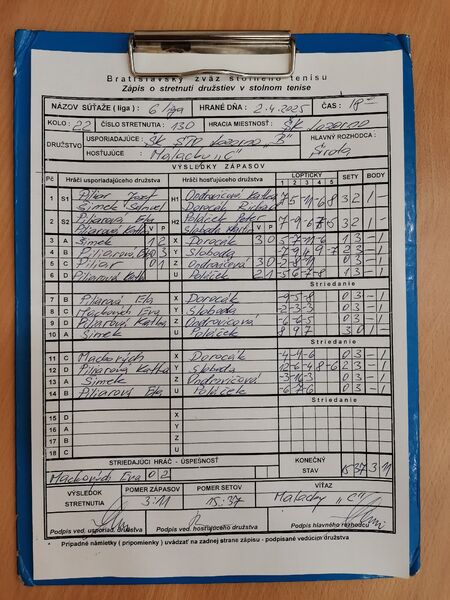 Bratislavský zväz stolného tenisu
Zápis o stretnutí družstiev v stolnom tenise
NÁZOV SÚŤAŽE ( liga ) : 6 liga HRANÉ DŇA : 2.4.2025 ČAS : 18
KOLO : 22 ČÍSLO STRETNUTIA : 130 HRACIA MIESTNOSŤ : ŠK Lozorno
DRUŽSTVO USPORIADAJÚCE : ŠK STO Lozorno "B" HLAVNÝ ROZHODCA :
HOSŤUJÚCE Malacky "C" Širota
VÝSLEDKY ZÁPASOV
Pč Hráči usporiadajúceho družstva Hráči hosťujúceho družstva LOPTIČKY SETY BODY
1 2 3 4 5
1 S1 Piliar Jozef H1 Ondrovičová Katka
Šimek
2 S2 Piliarová Eva H2 Poláček Peter
Piliarová Katka V P Sloboda V P
3 A Šimek 1 2 X Dorocák 3 0 1 3 - 1
4 B Piliarová Y Sloboda
5 C Piliar 0 1 Z Ondrovičová 3 0 0 3 - 1
6 D Piliarová Katka U Poláček 2 1 1 3 - 1
Striedanie
7 B Piliarová Eva X Dorocák -9 -5 -8 0 3 - 1
8 C Mackových Eva Y Sloboda -2 -3 -3 0 3 - 1
9 D Piliarová Katka Z Ondrovičová 0 3 - 1
10 A Šimek U Poláček 8 9 7 3 0 1 -
Striedanie
11 C Mackových X Dorocák 0 3 - 1
12 D Piliarová Katka Y Sloboda 2 3 - 1
13 A Šimek Z Ondrovičová 0 3 - 1
14 B Piliarová Eva U Poláček 0 3 - 1
Striedanie
15 D X
16 A Y
17 B Z
18 C U
STRIEDAJÚCI HRÁČ - ÚSPEŠNOSŤ KONEČNÝ STAV 15 37 3 11
Mackových Eva 0 2
VÝSLEDOK STRETNUTIA POMER ZÁPASOV POMER SETOV VÍŤAZ
3:11 15:37 Malacky "C"
Podpis ved. usporiad. družstva Podpis ved. hosťujúceho družstva Podpis hlavného rozhodcu
Prípadné námietky ( pripomienky ) uvádzať na zadnej strane zápisu - podpísané vedúcim družstva